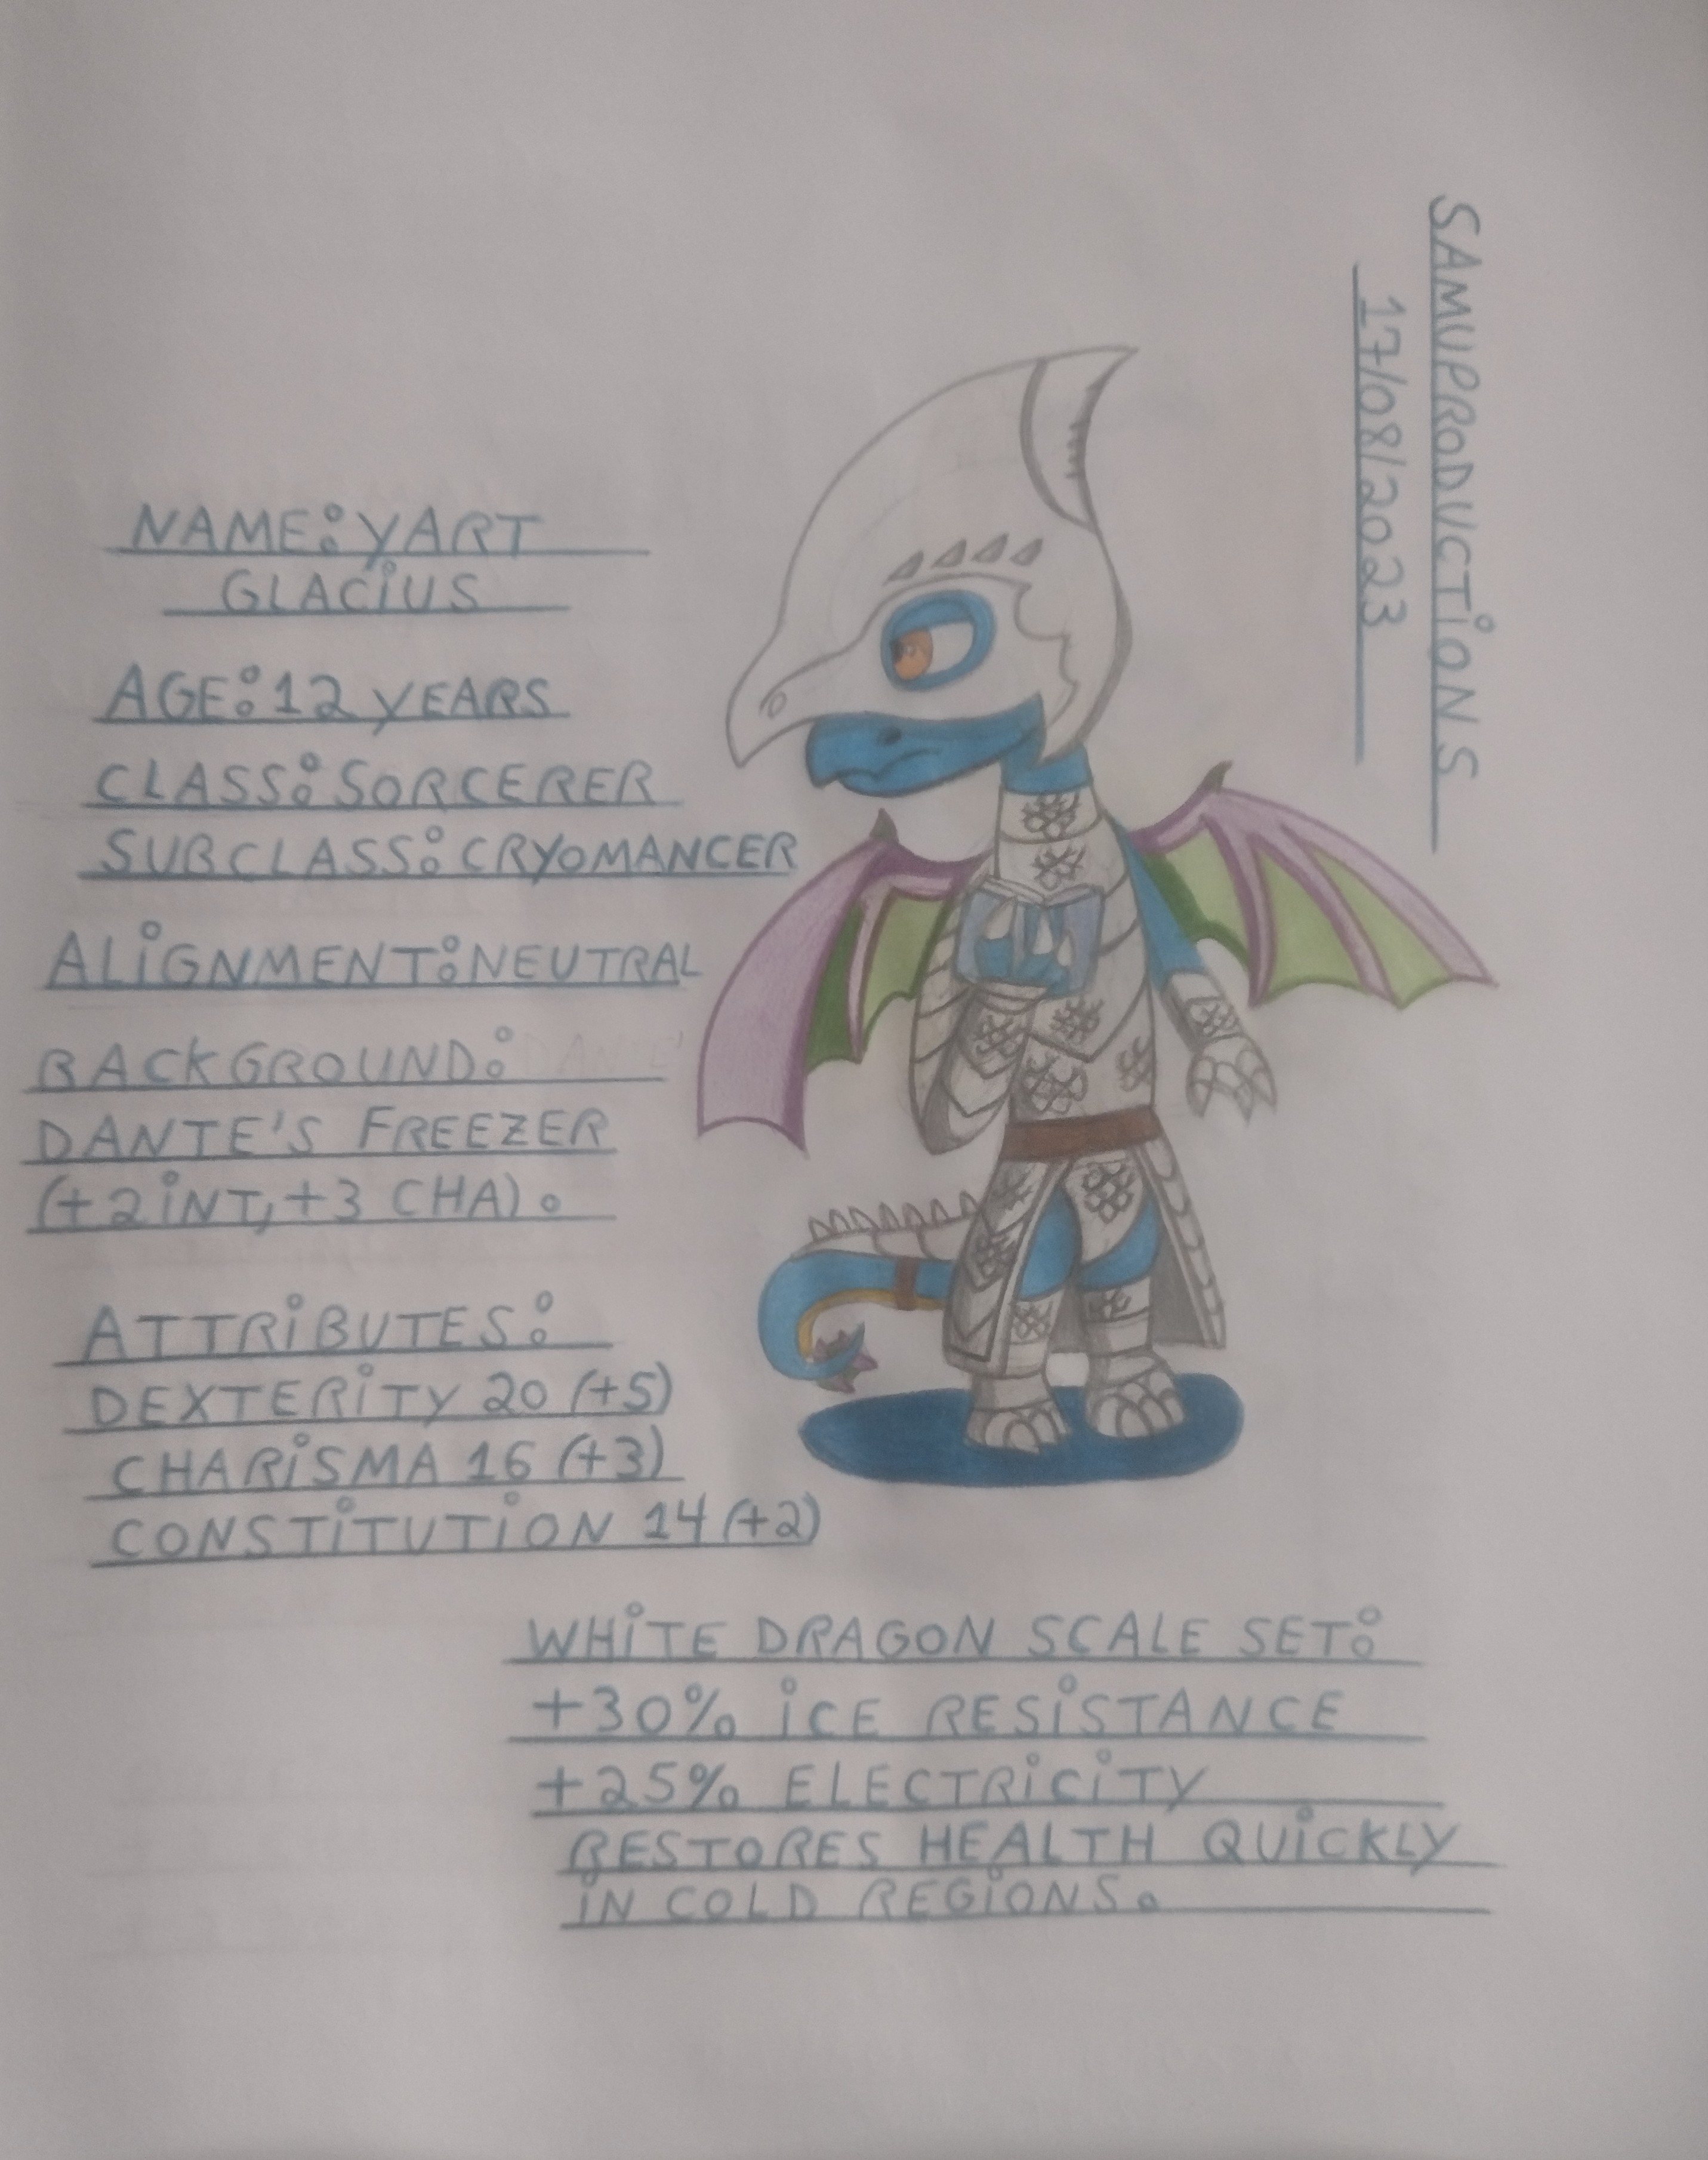 SAMUPRODUCTIONS
17/08/2023
NAME: YART
GLACIUS
AGE: 12 YEARS
CLASS: SORCERER
SUBCLASS: CRYOMANCER
ALIGNMENT: NEUTRAL
BACKGROUND:
DANTE'S FREEZER
(+2 INT, +3 CHA).
ATTRIBUTES:
DEXTERITY 20 (+5)
CHARISMA 16 (+3)
CONSTITUTION 14 (+2)
WHITE DRAGON SCALE SET:
+30% ICE RESISTANCE
+25% ELECTRICITY
RESTORES HEALTH QUICKLY
IN COLD REGIONS.